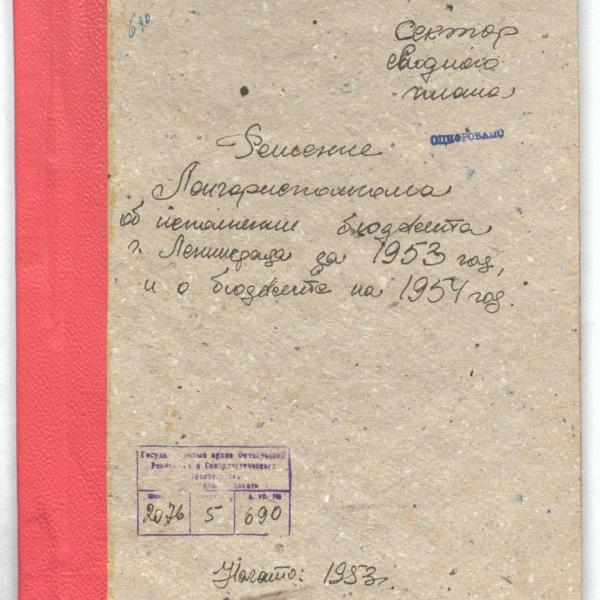 690
Сектор
сводного
плана
ОЦИФРОВАНО
Решение
Ленгорисполкома
об исполнении бюджета
г. Ленинграда за 1953 год,
и о бюджете на 1954 год.
Государственный архив Октябрьской
Революции и Социалистического
строительства
области
Фонд опись д. хр. №
2076 5 690
Начато: 1953г.